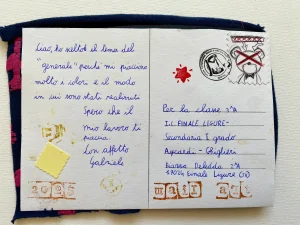 Ciao, ho scelto il tema del
"generale" perché mi piacciono
molto i colori e il modo
in cui sono stati realizzati
Spero che il
mio lavoro ti
piaccia
Con affetto
Gabriele
Per la classe 3ªA
I.C FINALE LIGURE-
Secondaria I grado
Aycardi - Ghiglieri
Deledda 2ªA
17024 Finale Ligure (SV)
mail art